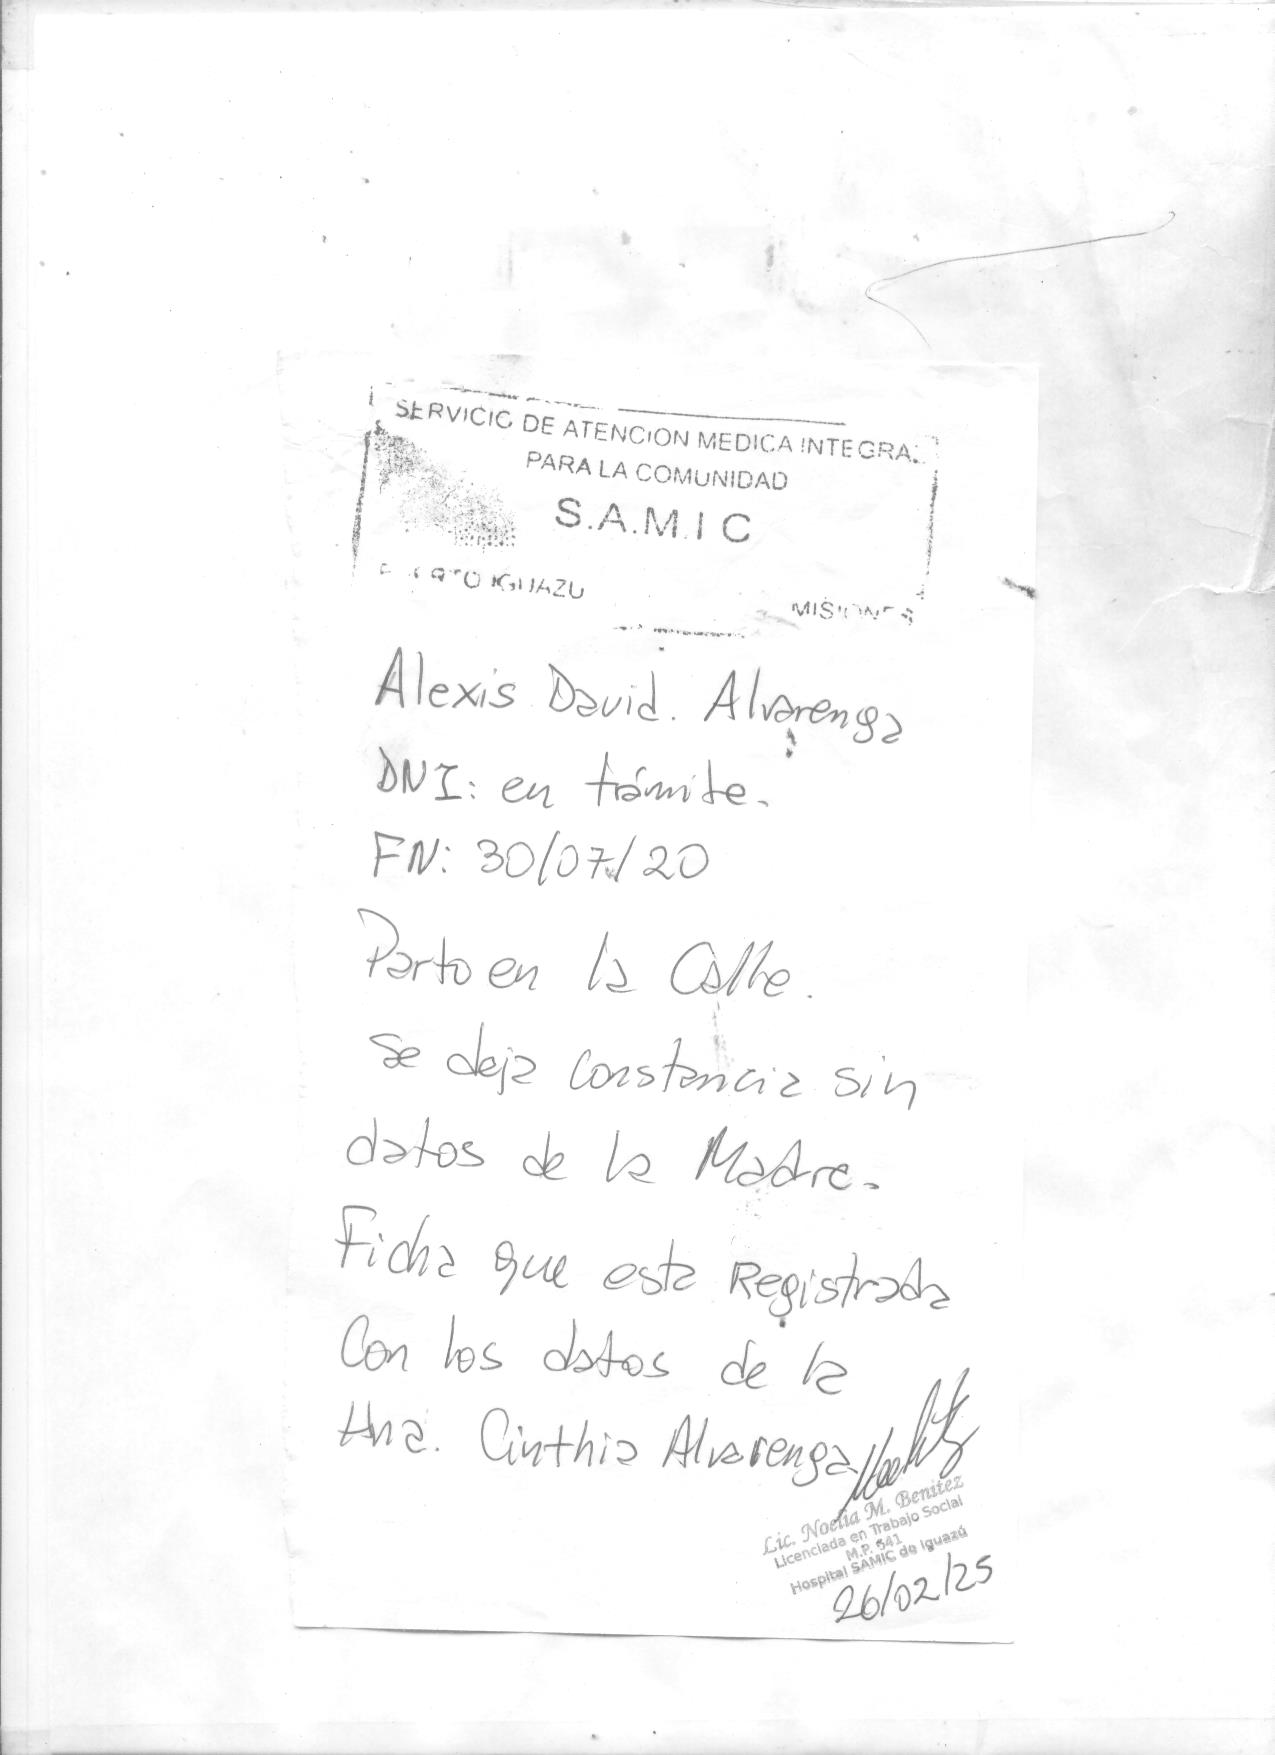 SERVICIO DE ATENCION MEDICA INTEGRAL
PARA LA COMUNIDAD
S.A.M.I C
PUERTO IGUAZU MISIONES
Alexis David. Alvarenga
DNI: en trámite.
FN: 30/07/20
Parto en la Calle.
Se deja constancia sin
datos de la Madre.
Ficha que esta Registrada
Con los datos de la
Hna. Cinthia Alvarenga
Lic. Noelia M. Benitez
Licenciada en Trabajo Social
M.P. 541
Hospital SAMIC de Iguazú
26/02/25